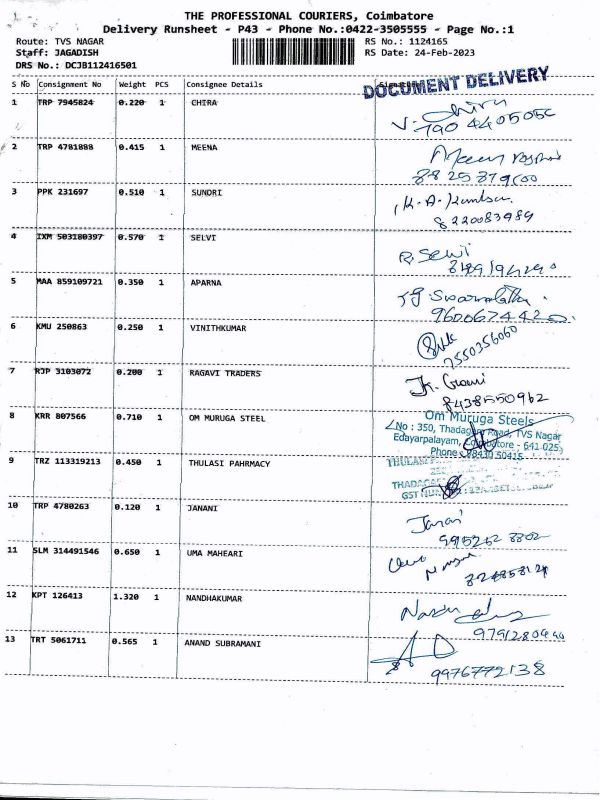 THE PROFESSIONAL COURIERS, Coimbatore
Delivery Runsheet - P43 - Phone No.:0422-3505555 - Page No.:1
Route: TVS NAGAR RS No.: 1124165
Staff: JAGADISH RS Date: 24-Feb-2023
DRS No.: DCJB112416501
S No Consignment No Weight PCS Consignee Details
DOCUMENT DELIVERY
1 TRP 7945824 0.220 1 CHIRA
2 TRP 4781888 0.415 1 MEENA
3 PPK 231697 0.510 1 SUNDRI
8220083989
4 IXM 503180397 0.570 1 SELVI
R. Selvi
5 MAA 859109721 0.350 1 APARNA
9600674420
6 KMU 250863 0.250 1 VINITHKUMAR
7550356060
7 RJP 3103072 0.200 1 RAGAVI TRADERS
8438550962
8 KRR 807566 0.710 1 OM MURUGA STEEL
Om Muruga Steels
No : 350, Thadagam Road, TVS Nagar
Edayarpalayam, Coimbatore - 641 025
Phone : 98430 50415
9 TRZ 113319213 0.450 1 THULASI PAHRMACY
10 TRP 4780263 0.120 1 JANANI
Janani
11 SLM 314491546 0.650 1 UMA MAHEARI
12 KPT 126413 1.320 1 NANDHAKUMAR
13 TRT 5061711 0.565 1 ANAND SUBRAMANI
9976772138